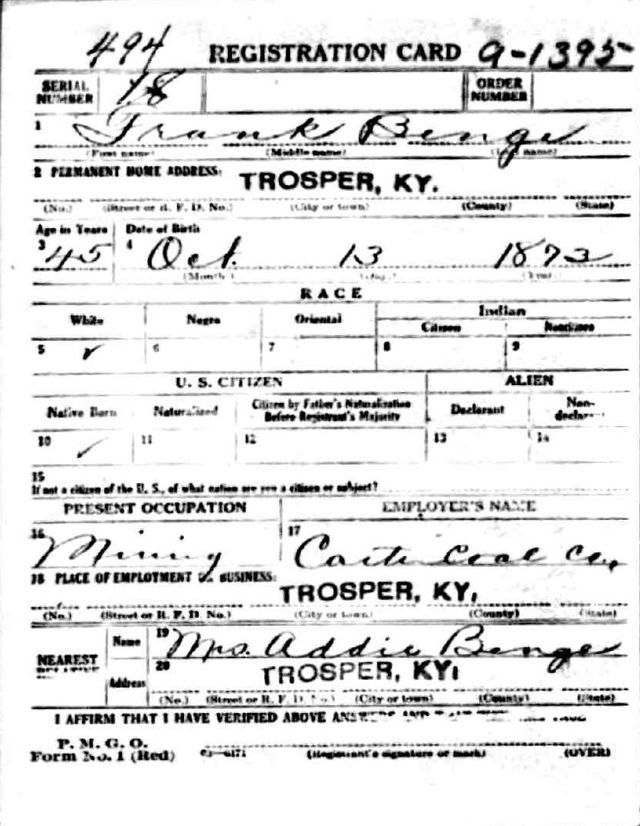 494 REGISTRATION CARD 9-1395
SERIAL NUMBER 18 ORDER NUMBER
1 Frank Benge
(First name) (Middle name) (Last name)
2 PERMANENT HOME ADDRESS: TROSPER, KY.
(No.) (Street or R. F. D. No.) (City or town) (County) (State)
Age in Years Date of Birth
3 45 4 Oct. 13 1873
(Month) (Day) (Year)
RACE
White Negro Oriental Indian
Citizen Noncitizen
5 ✓ 6 7 8 9
U. S. CITIZEN ALIEN
Native Born Naturalized Citizen by Father's Naturalization Before Registrant's Majority Declarant Non-declarant
10 ✓ 11 12 13 14
15
If not a citizen of the U. S., of what nation are you a citizen or subject?
PRESENT OCCUPATION EMPLOYER'S NAME
16 Mining 17 Coal Co.
18 PLACE OF EMPLOYMENT OR BUSINESS:
TROSPER, KY.
(No.) (Street or R. F. D. No.) (City or town) (County) (State)
NEAREST RELATIVE Name 19 Mrs. Addie Benge
Address 20 TROSPER, KY.
(No.) (Street or R. F. D. No.) (City or town) (County) (State)
I AFFIRM THAT I HAVE VERIFIED ABOVE ANSWERS AND THAT THEY ARE TRUE
P. M. G. O.
Form No. 1 (Red) (Registrant's signature or mark) (OVER)